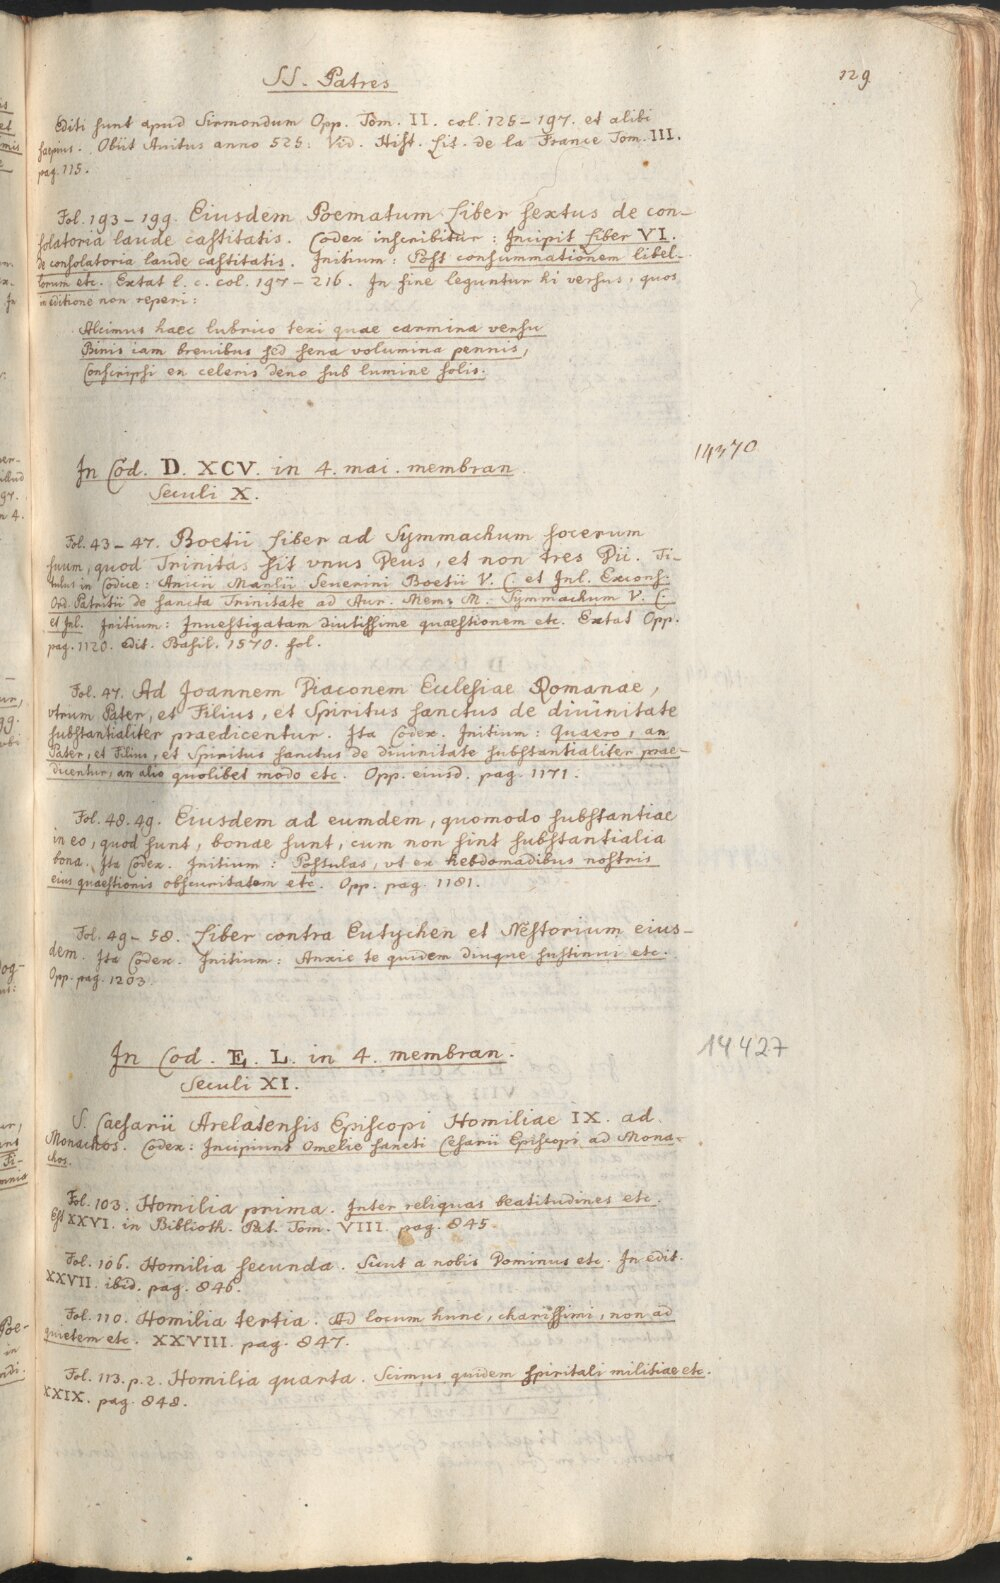 SS. Patres
129
Editi sunt apud Sirmondum Opp. Tom. II. col. 125-197. et alibi
saepius. Obiit Auitus anno 525: Vid. Hist. Lit. de la France Tom. III.
pag. 115.
Fol. 193-199. Eiusdem Poematum Liber sextus de con-
solatoria laude castitatis. Codex inscribitur: Incipit Liber VI.
de consolatoria laude castitatis. Initium: Post consummationem libel-
lorum etc. Extat l. c. col. 197-216. In fine leguntur hi versus, quos
in editione non reperi:
Alcimus haec lubrico texi quae carmina versu
Binis iam brevibus sed sena volumina pennis,
Conscripsi en celeris deno sub lumine solis.
In Cod. D. XCV. in 4. mai. membran.
Seculi X.
14370
Fol. 43-47. Boetii Liber ad Symmachum socerum
suum, quod Trinitas sit vnus Deus, et non tres Dii. Ti-
tulus in Codice: Anicii Manlii Seuerini Boetii V. C. et Inl. Excons.
Ord. Patritii de sancta Trinitate ad Aur. Mem. M. Symmachum V. C.
et Inl. Initium: Inuestigatam diutissime quaestionem etc. Extat Opp.
pag. 1120. edit. Basil. 1570. fol.
Fol. 47. Ad Joannem Diaconem Ecclesiae Romanae,
vtrum Pater, et Filius, et Spiritus sanctus de diuinitate
substantialiter praedicentur. Ita Codex. Initium: Quaero, an
Pater, et Filius, et Spiritus sanctus de diuinitate substantialiter prae-
dicentur, an alio quolibet modo etc. Opp. eiusd. pag. 1171.
Fol. 48. 49. Eiusdem ad eumdem, quomodo substantiae
in eo, quod sunt, bonae sunt, cum non sint substantialia
bona. Ita Codex. Initium: Postulas, vt ex hebdomadibus nostris
eius quaestionis obscuritatem etc. Opp. pag. 1181.
Fol. 49-58. Liber contra Eutychen et Nestorium eius-
dem. Ita Codex. Initium: Anxie te quidem diuque sustinui etc.
Opp. pag. 1203.
In Cod. E. L. in 4. membran.
Seculi XI.
14427
S. Caesarii Arelatensis Episcopi Homiliae IX. ad
Monachos. Codex: Incipiunt Omelie sancti Cesarii Episcopi ad Mona-
chos.
Fol. 103. Homilia prima. Inter reliquas beatitudines etc.
Est XXVI. in Biblioth. Pat. Tom. VIII. pag. 845.
Fol. 106. Homilia secunda. Sicut a nobis Dominus etc. In edit.
XXVII. ibid. pag. 846.
Fol. 110. Homilia tertia. Ad locum hunc, charissimi, non ad
quietem etc. XXVIII. pag. 847.
Fol. 113. p. 2. Homilia quarta. Scimus quidem spiritali militiae etc.
XXIX. pag. 848.